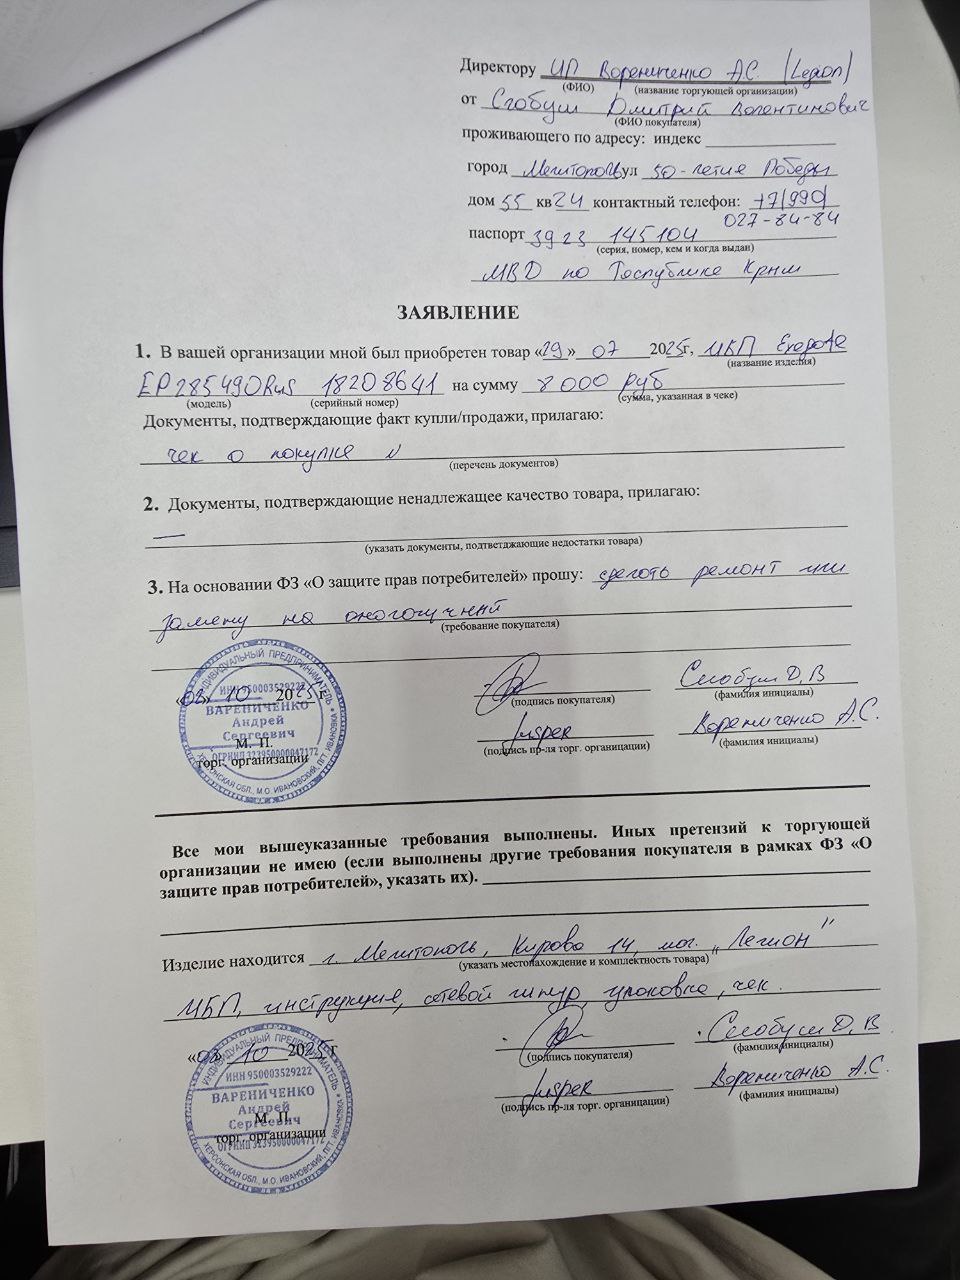 Директору ИП Варениченко А.С. (Legion)
(ФИО) (название торгующей организации)
от Слобуш Дмитрий Валентинович
(ФИО покупателя)
проживающего по адресу: индекс
город Мелитополь ул 50-летие Победы
дом 55 кв 24 контактный телефон: +7(990)
027-84-84
паспорт 3923 145104
(серия, номер, кем и когда выдан)
МВД по Республике Крым
ЗАЯВЛЕНИЕ
1. В вашей организации мной был приобретен товар «29» 07 2025г, ИБП Exegate
(название изделия)
EP285490Rus 18208641 на сумму 8000 руб
(модель) (серийный номер) (сумма, указанная в чеке)
Документы, подтверждающие факт купли/продажи, прилагаю:
чек о покупке
(перечень документов)
2. Документы, подтверждающие ненадлежащее качество товара, прилагаю:
—
(указать документы, подтветджающие недостатки товара)
3. На основании ФЗ «О защите прав потребителей» прошу: сделать ремонт или
замену на аналогичный
(требование покупателя)
«03» 10 2025 г Слобуш Д,В
(подпись покупателя) (фамилия инициалы)
М. П. Варениченко А.С.
торг. организации (подпись пр-ля торг. органицации) (фамилия инициалы)
ИНДИВИДУАЛЬНЫЙ ПРЕДПРИНИМАТЕЛЬ
ИНН 950003529222
ВАРЕНИЧЕНКО
Андрей
Сергеевич
ОГРНИП 323950000047172
ХЕРСОНСКАЯ ОБЛ., М.О. ИВАНОВСКИЙ, ПГТ. ИВАНОВКА
Все мои вышеуказанные требования выполнены. Иных претензий к торгующей
организации не имею (если выполнены другие требования покупателя в рамках ФЗ «О
защите прав потребителей», указать их).
Изделие находится г. Мелитополь, Кирова 14, маг. "Легион"
(указать местонахождение и комплектность товара)
ИБП, инструкция, сетевой шнур, упаковка, чек.
«03» 10 2025 г Слобуш Д, В
(подпись покупателя) (фамилия инициалы)
М. П. Варениченко А.С.
торг. организации (подпись пр-ля торг. органицации) (фамилия инициалы)
ИНДИВИДУАЛЬНЫЙ ПРЕДПРИНИМАТЕЛЬ
ИНН 950003529222
ВАРЕНИЧЕНКО
Андрей
Сергеевич
ОГРНИП 323950000047172
ХЕРСОНСКАЯ ОБЛ., М.О. ИВАНОВСКИЙ, ПГТ. ИВАНОВКА